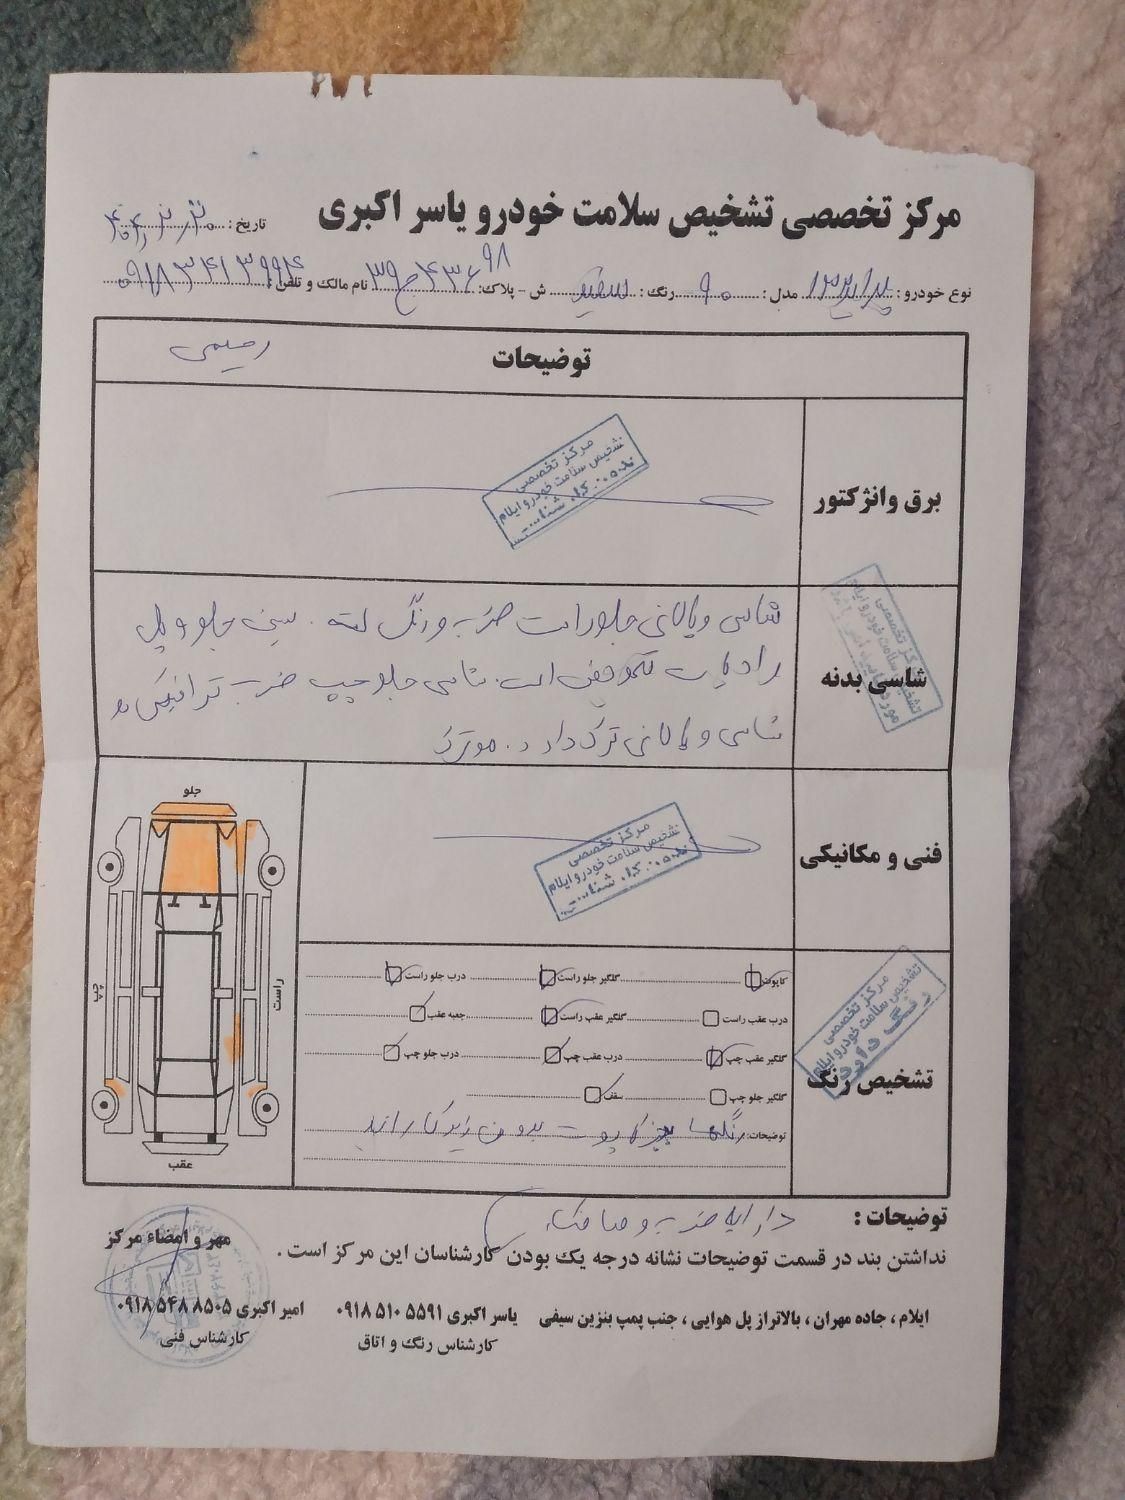 مرکز تخصصی تشخیص سلامت خودرو یاسر اکبری
تاریخ :
نوع خودرو : پراید ۱۳۲ مدل : ۹۰ رنگ : سفید ش - پلاک: ۹۸ ۴۳۶ ج ۳۹ نام مالک و تلفن : ۰۹۱۸۳۴۱۳۹۹۴
توضیحات
رحیمی
برق وانژکتور
مرکز تخصصی
تشخیص سلامت خودرو ایلام
شاسی بدنه
شاسی و پالانی جلو راست ضرب و رنگ . سینی جلو و پل
رادیات تعویض است . شاسی جلو چپ ضرب
شاسی و پالانی ترک دارد .
مرکز تخصصی
تشخیص سلامت خودرو ایلام
فنی و مکانیکی
مرکز تخصصی
تشخیص سلامت خودرو ایلام
جلو
چپ
راست
عقب
تشخیص رنگ
مرکز تخصصی
تشخیص سلامت خودرو ایلام
رنگ دارد
کاپوت گلگیر جلو راست درب جلو راست
درب عقب راست گلگیر عقب راست جعبه عقب
گلگیر عقب چپ درب عقب چپ درب جلو چپ
گلگیر جلو چپ سقف
توضیحات: رنگها بجز کاپوت بدون زیرکار اند
توضیحات : دارای ضرب و صافکاری
نداشتن بند در قسمت توضیحات نشانه درجه یک بودن کارشناسان این مرکز است .
مهر و امضاء مرکز
ایلام ، جاده مهران ، بالاتراز پل هوایی ، جنب پمپ بنزین سیفی یاسر اکبری ۵۵۹۱ ۵۱۰ ۰۹۱۸ امیر اکبری ۸۵۰۵ ۵۴۸ ۰۹۱۸
کارشناس رنگ و اتاق کارشناس فنی